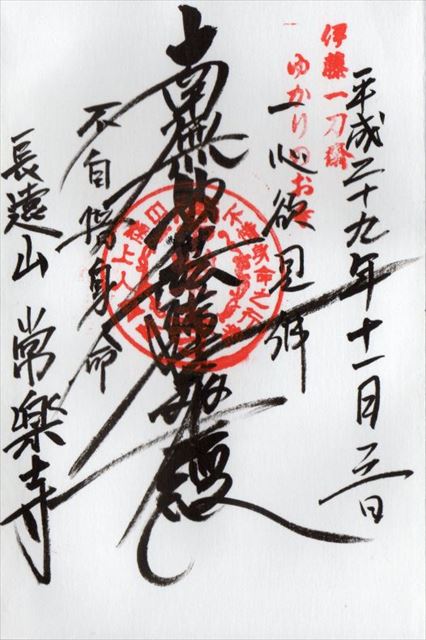 平成二十九年十一月三日
伊藤一刀斎
ゆかりのお寺
一心欲見佛
南無妙法蓮華経
不自惜身命
長遠山 常楽寺